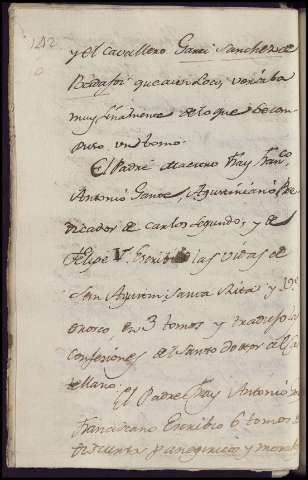 142
y el cavallero Garci Sanchez de
Badajoz que aun loco, versaba
muy finalmente de lo que se com
puso un tomo.
El Padre Maestro Fray Franco
Antonio Gante, Agustiniano Pre
dicador de Carlos segundo, y de
Felipe V. Escribio las vidas de
San Agustin, Santa Rita y
Orosco en 3 tomos y tradujo las
Confesiones del Santo Doctor al Cas
tellano.
El Padre Fray Antonio
Franciscano Escribio 6 tomos de
Panegiricos y morales